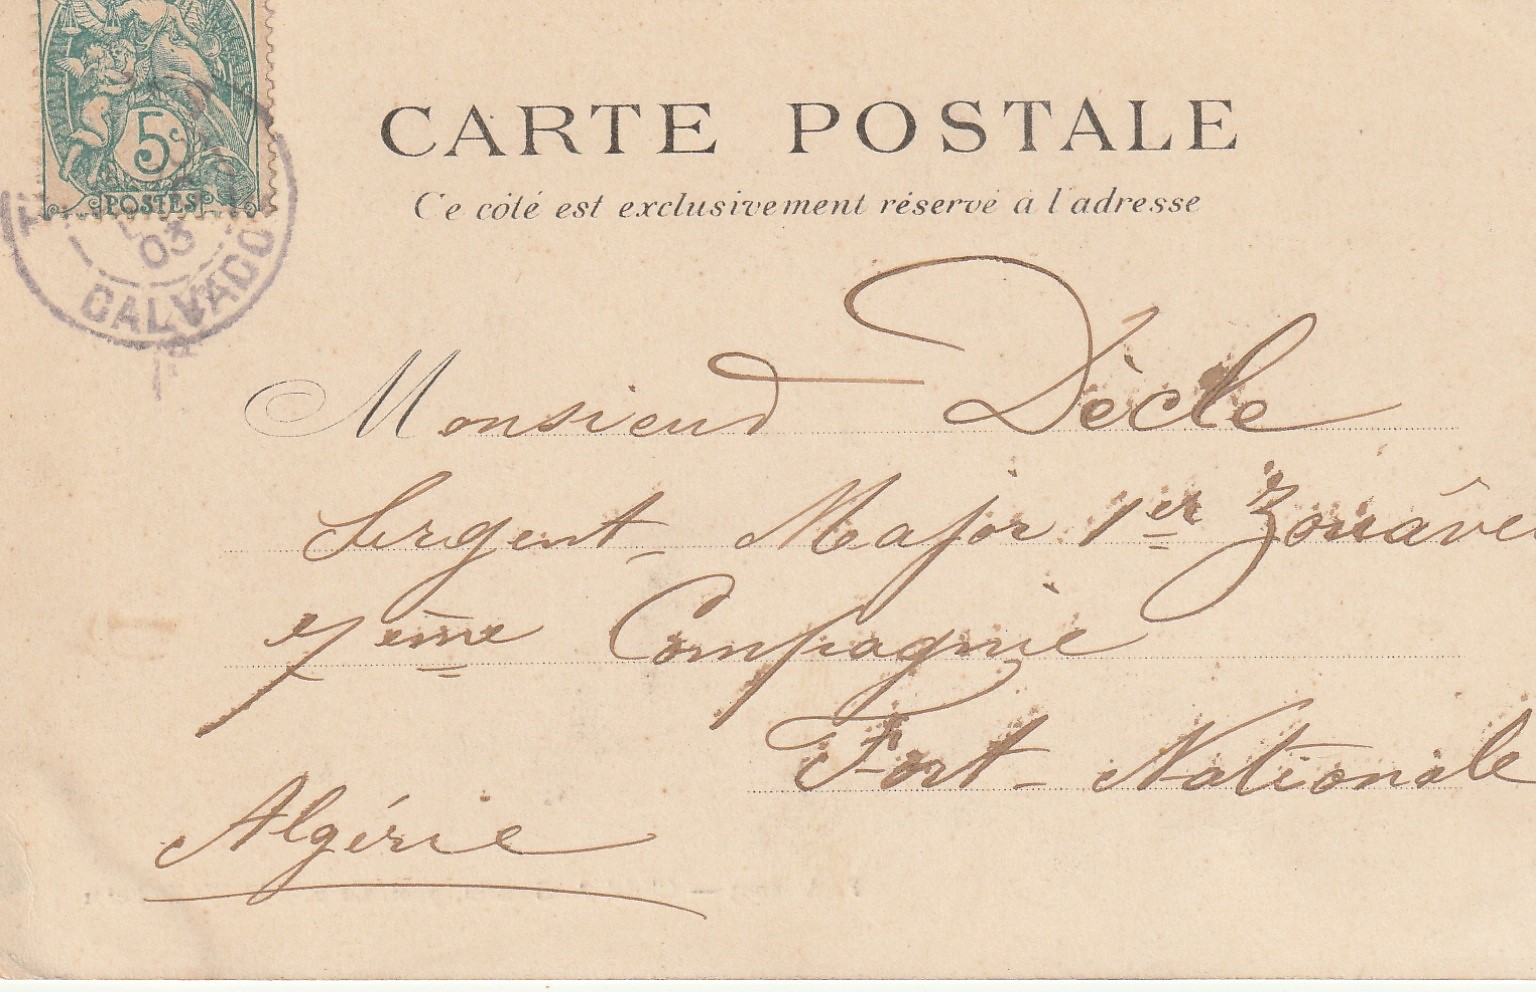 5c
POSTES
03
CALVADO
CARTE POSTALE
Ce côté est exclusivement réservé à l'adresse
Monsieur Dècle
Sergent Major 1er Zouave
7ème Compagnie
Fort-Nationale
Algérie